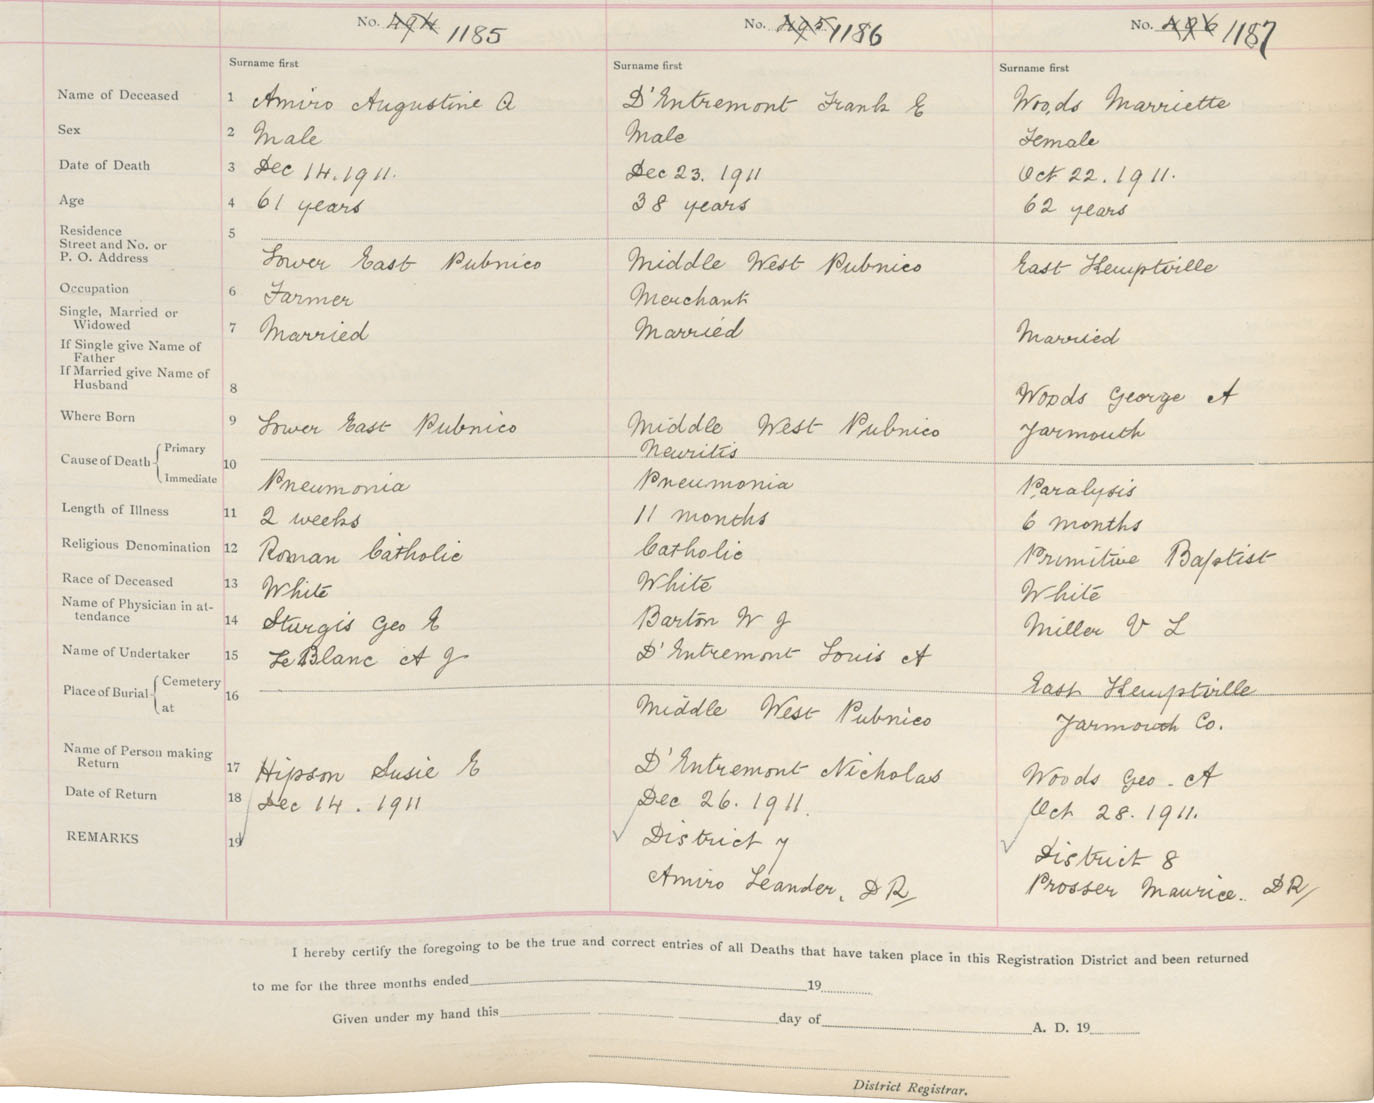 No. 494 1185 No. 495 1186 No. 496 1187
Surname first Surname first Surname first
Name of Deceased 1 Amiro Augustine A D'Entremont Frank E Woods Marriette
Sex 2 Male Male Female
Date of Death 3 Dec 14. 1911. Dec 23. 1911 Oct 22. 1911.
Age 4 61 years 38 years 62 years
Residence 5
Street and No. or
P. O. Address Lower East Pubnico Middle West Pubnico East Kemptville
Occupation 6 Farmer Merchant
Single, Married or
Widowed 7 Married Married Married
If Single give Name of
Father
If Married give Name of
Husband 8 Woods George A
Where Born 9 Lower East Pubnico Middle West Pubnico Yarmouth
Cause of Death Primary 10 Neuritis
Immediate Pneumonia Pneumonia Paralysis
Length of Illness 11 2 weeks 11 months 6 months
Religious Denomination 12 Roman Catholic Catholic Primitive Baptist
Race of Deceased 13 White White White
Name of Physician in at-
tendance 14 Sturgis Geo E Barton W J Miller V L
Name of Undertaker 15 LeBlanc A J D'Entremont Louis A
Place of Burial Cemetery 16 East Kemptville
at Middle West Pubnico Yarmouth Co.
Name of Person making
Return 17 Hipson Susie E D'Entremont Nicholas Woods Geo. A
Date of Return 18 Dec 14. 1911 Dec 26. 1911. Oct 28. 1911.
REMARKS 19 District 7 District 8
Amiro Leander, DR Prosser Maurice. DR
I hereby certify the foregoing to be the true and correct entries of all Deaths that have taken place in this Registration District and been returned
to me for the three months ended 19
Given under my hand this day of A. D. 19
District Registrar.